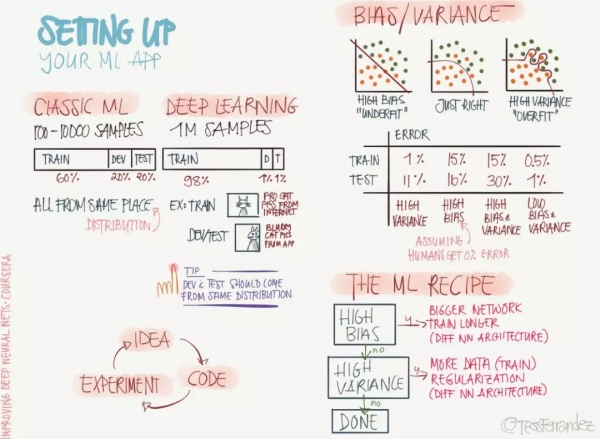 SETTING UP
YOUR ML APP
CLASSIC ML
100-10000 SAMPLES
TRAIN DEV TEST
60% 20% 20%
ALL FROM SAME PLACE
DISTRIBUTION
DEEP LEARNING
1M SAMPLES
TRAIN D T
98% 1% 1%
EX: TRAIN
PRO CAT
PICS FROM
INTERNET
DEV/TEST
BLURRY
CAT PICS
FROM APP
TIP
DEV & TEST SHOULD COME
FROM SAME DISTRIBUTION
ml
IDEA
CODE
EXPERIMENT
IMPROVING DEEP NEURAL NETS · COURSERA
BIAS/VARIANCE
HIGH BIAS
"UNDERFIT"
JUST RIGHT
HIGH VARIANCE
"OVERFIT"
ERROR
TRAIN 1% 15% 15% 0.5%
TEST 11% 16% 30% 1%
HIGH
VARIANCE
HIGH
BIAS
HIGH
BIAS &
VARIANCE
LOW
BIAS &
VARIANCE
ASSUMING
HUMANS GET 0% ERROR
THE ML RECIPE
HIGH
BIAS
y
BIGGER NETWORK
TRAIN LONGER
(DIFF NN ARCHITECTURE)
no
HIGH
VARIANCE
y
MORE DATA (TRAIN)
REGULARIZATION
(DIFF NN ARCHITECTURE)
no
DONE
©TessFerrandez